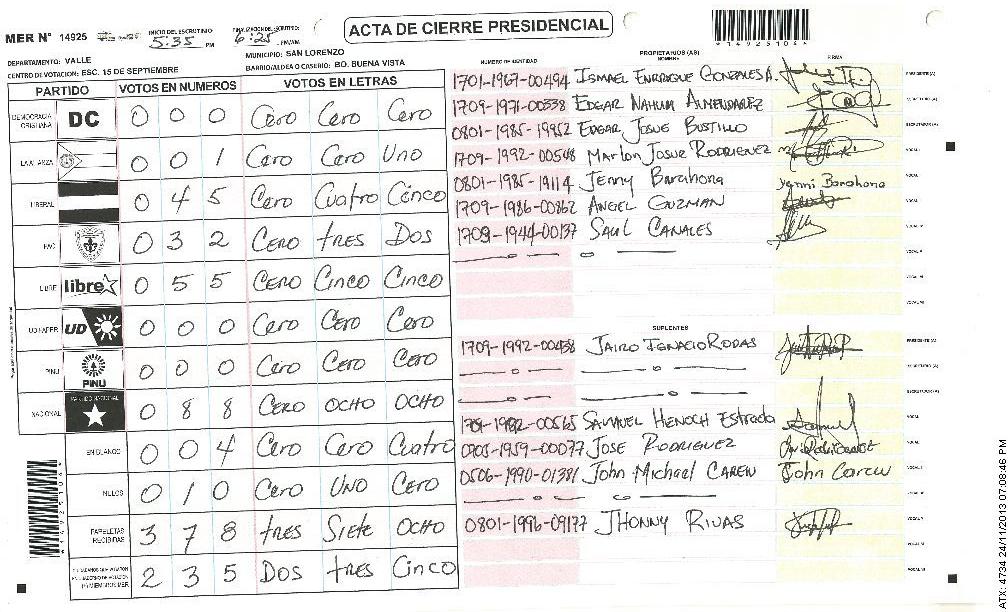 ACTA DE CIERRE PRESIDENCIAL
MER N° 14925 INICIO DEL ESCRUTINIO 5:35 PM FINALIZACION DEL ESCRUTINIO 6:25
*14925106*
DEPARTAMENTO: VALLE MUNICIPIO: SAN LORENZO
CENTRO DE VOTACION: ESC. 15 DE SEPTIEMBRE BARRIO/ALDEA O CASERIO: BO. BUENA VISTA
PARTIDO VOTOS EN NUMEROS VOTOS EN LETRAS
DEMOCRACIA CRISTIANA DC 0 0 0 Cero Cero Cero
LA ALIANZA 0 0 1 Cero Cero Uno
LIBERAL 0 4 5 Cero Cuatro Cinco
PAC 0 3 2 Cero tres Dos
LIBRE libre 0 5 5 Cero Cinco Cinco
UD FAPER UD 0 0 0 Cero Cero Cero
PINU PINU 0 0 0 Cero Cero Cero
NACIONAL PARTIDO NACIONAL 0 8 8 Cero OCHO OCHO
EN BLANCO 0 0 4 Cero Cero Cuatro
NULOS 0 1 0 Cero UNO Cero
PAPELETAS RECIBIDAS 3 7 8 tres Siete OCHO
2 3 5 Dos tres Cinco
PROPIETARIOS (AS)
NUMERO DE IDENTIDAD NOMBRE FIRMA
1701-1967-00494 ISMAEL ENRRIQUE GONZALES A. PRESIDENTE(A)
1709-1971-00338 EDGAR NAHUM ALMENDAREZ SECRETARIO(A)
0801-1985-19952 EDGAR JOSUE BUSTILLO ESCRUTADOR(A)
1709-1992-00548 Marlon Josue RODRIGUEZ VOCAL I
0801-1985-19114 Jenny Barahona Yenni Barahona VOCAL
1709-1986-00862 ANGEL GUZMAN VOCAL
1709-1944-00137 SAUL CANALES VOCAL
SUPLENTES
1709-1992-00438 JAIRO IGNACIO RODAS PRESIDENTE(A)
SECRETARIO(A)
ESCRUTADOR(A)
1709-1982-00565 SAMUEL HENOCH Estrada VOCAL
-1959-00077 JOSE RODRIGUEZ VOCAL
0506-1990-01381 John Michael CAREW John Carew VOCAL
0801-1996-09177 JHONNY RIVAS VOCAL
*14925106*
ATX: 4734 24/11/2013 07:08:46 PM